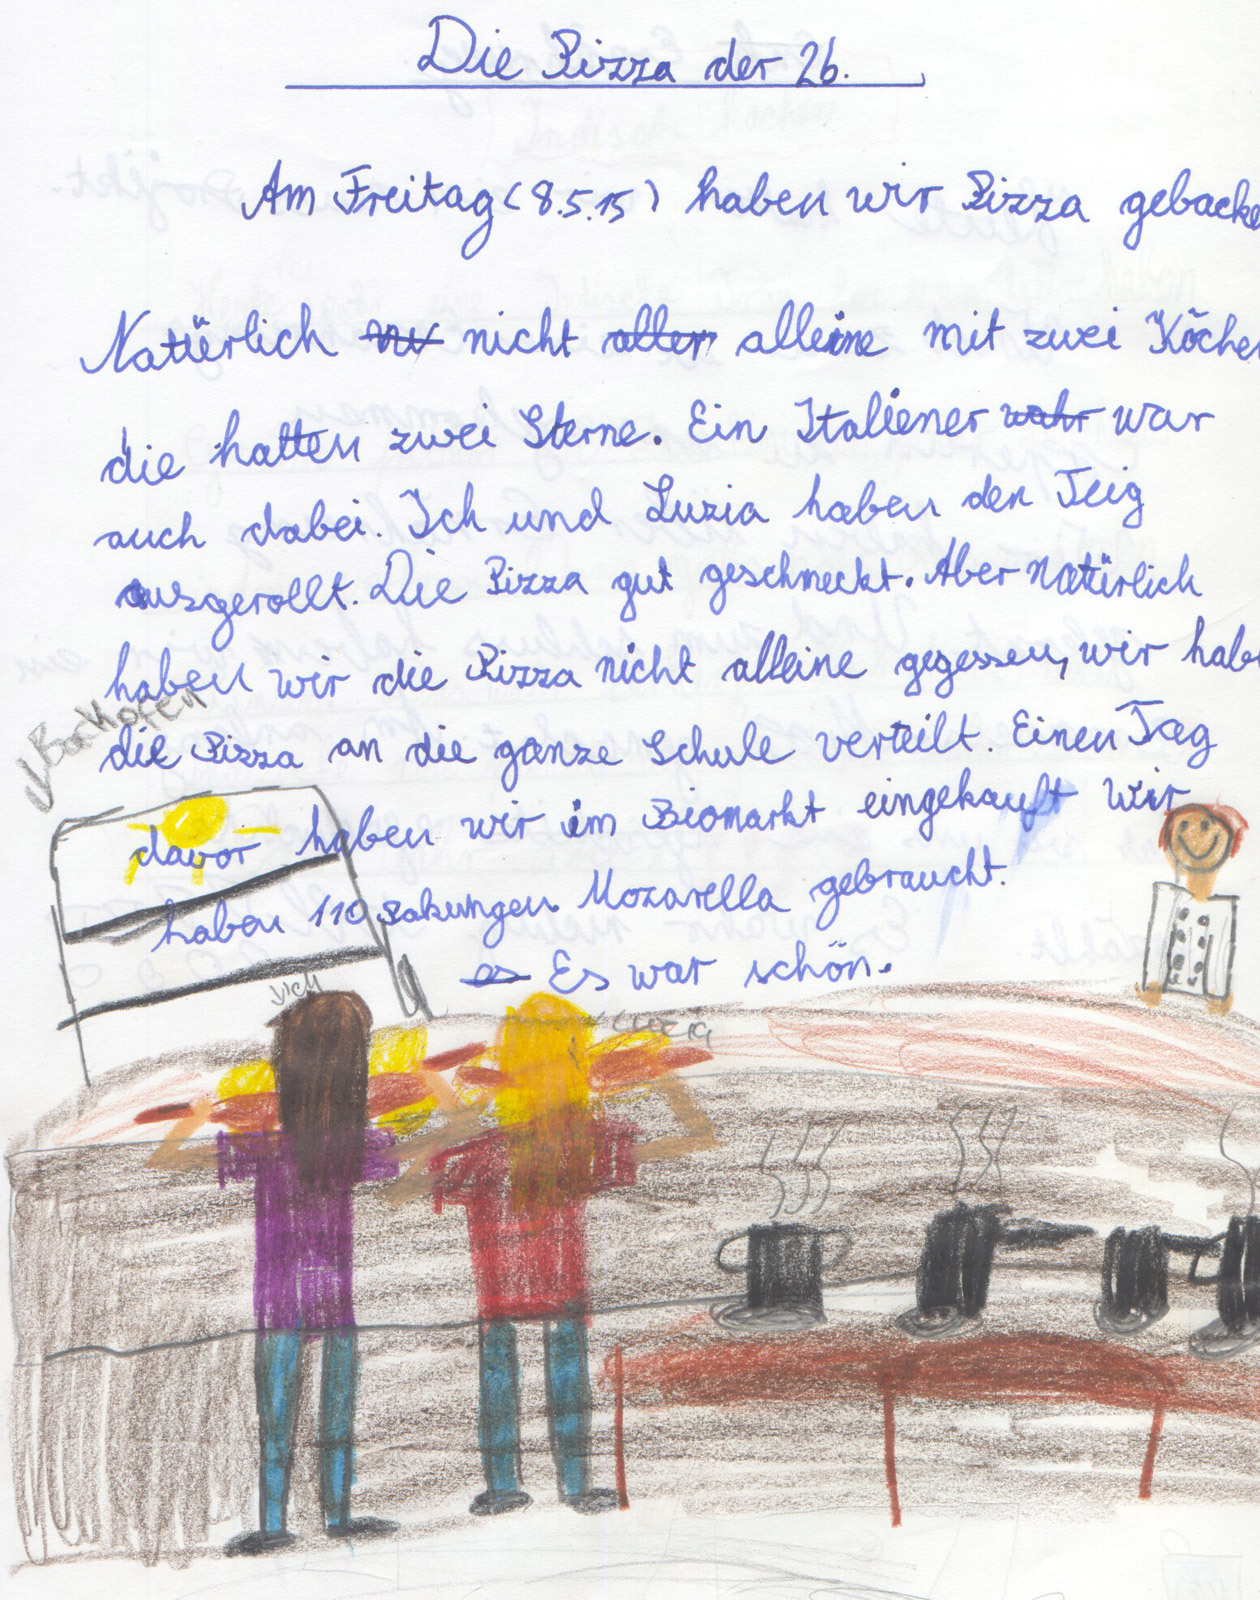 Die Pizza der 2b.
Am Freitag (8.5.15) haben wir Pizza gebacke
Natürlich nicht alleine mit zwei Köchen
die hatten zwei Sterne. Ein Italiener wahr war
auch dabei. Ich und Luzia haben den Teig
ausgerollt. Die Pizza gut geschmeckt. Aber natürlich
haben wir die Pizza nicht alleine gegessen, wir habe
die Pizza an die ganze Schule verteilt. Einen Tag
davor haben wir im Biomarkt eingekauft Wir
haben 110 Pakungen Mozarella gebraucht.
es Es war schön.
Backofen
ich
Luzia